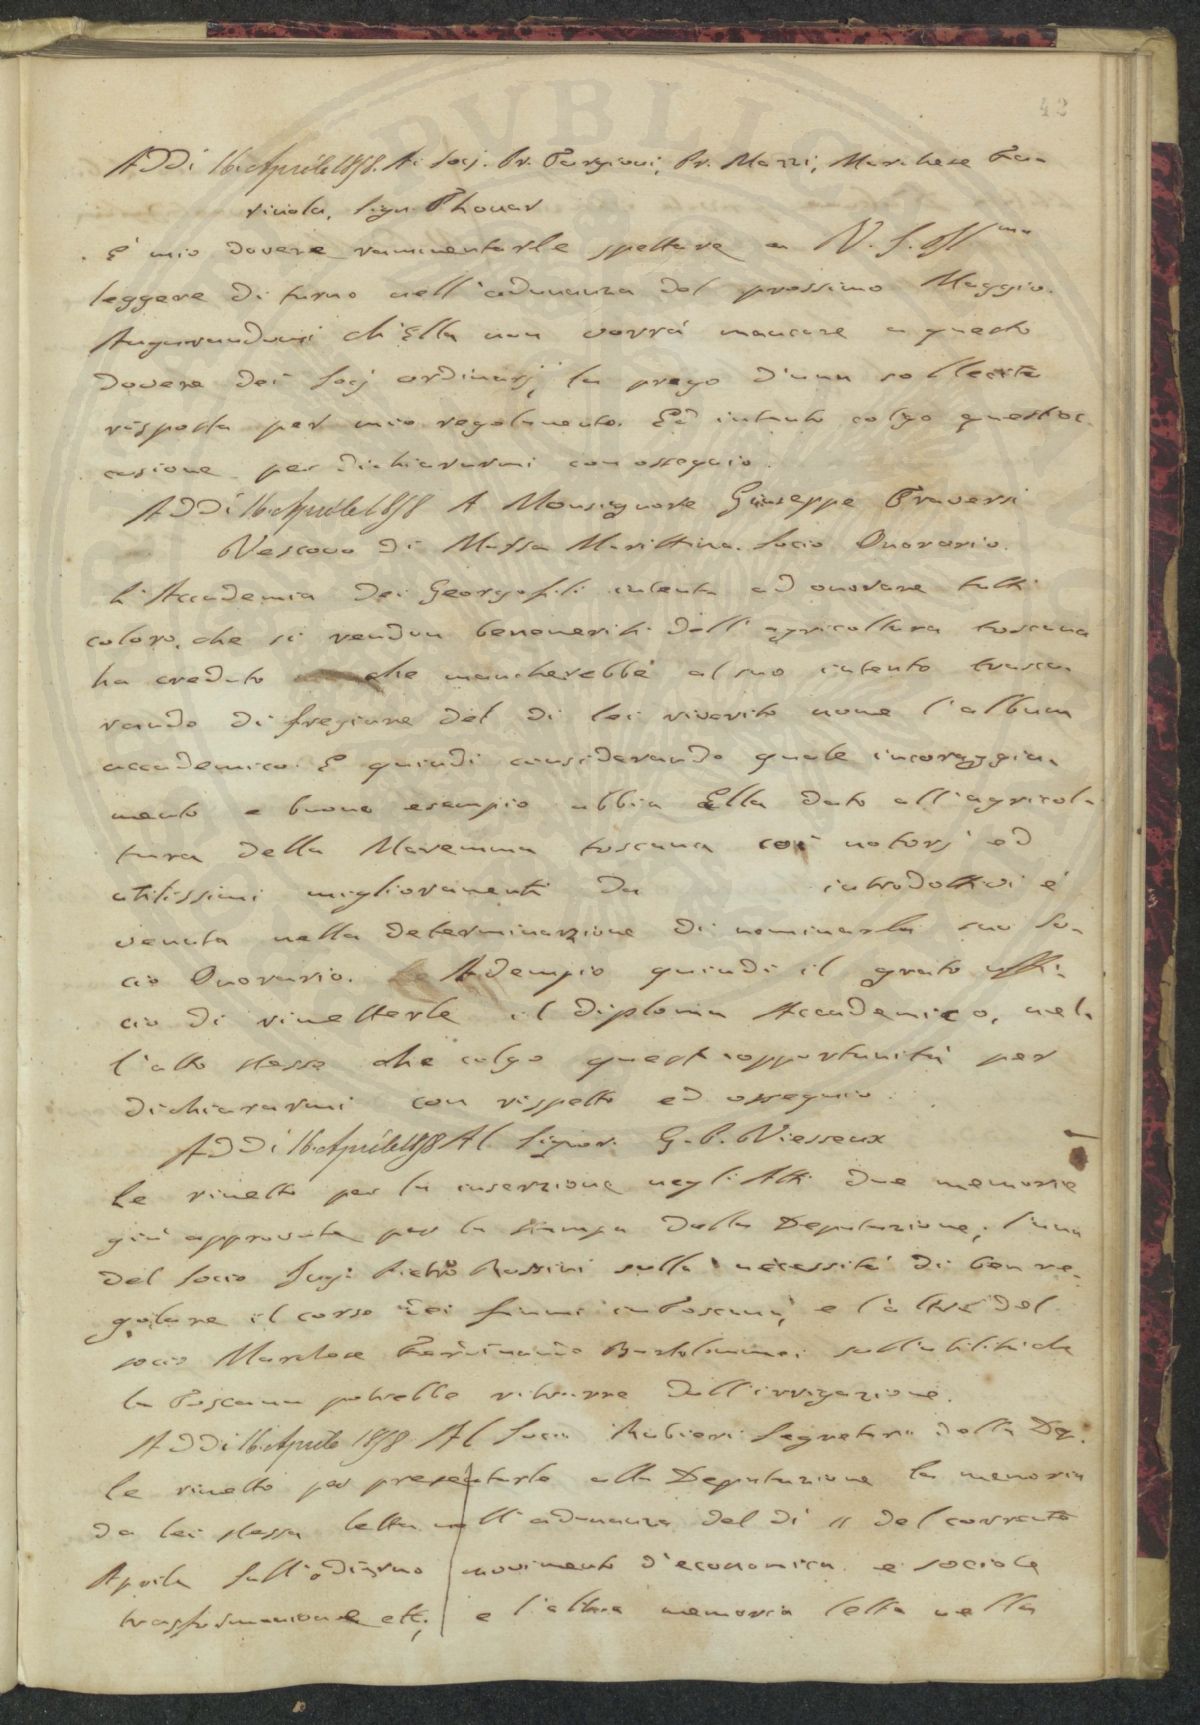 42
Addì 16. Aprile 1858. Ai Socj. Pr. Targioni, Pr. Mazzi, Marchese Ga-
ricciola, Sigr. Thouar
È mio dovere rammentarle spettare a V. S. Ill.ma
leggere di turno nell'adunanza del prossimo Maggio.
Augurandomi ch'Ella non vorrà mancare a questo
dovere dei Socj ordinarj, la prego d'una sollecita
risposta per mio regolamento. Ed intanto colgo quest'oc-
casione per dichiararmi con ossequio.
Addì 16. Aprile 1858 A Monsignore Giuseppe Traversi
Vescovo di Massa Marittima. Socio Onorario.
L'Accademia dei Georgofili intenta ad onorare tutti
coloro, che si rendon benemeriti dell'agricoltura toscana
ha creduto che mancherebbe al suo intento trascu-
rando di fregiare del di lei riverito nome l'album
accademico. E quindi considerando quale incoraggia-
mento e buono esempio abbia Ella dato all'agricol-
tura della Maremma toscana coi notorj ed
utilissimi miglioramenti da introdottivi è
venuta nella determinazione di nominarla suo So-
cio Onorario. Adempio quindi il grato uffi-
cio di rimetterle il diploma Accademico, nel-
l'atto stesso che colgo quest'opportunità per
dichiararmi con rispetto ed ossequio.
Addì 16. Aprile 1858 Al Signor. G. P. Viesseux
Le rimetto per la inserzione negli Atti due memorie
già approvate per la stampa dalla Deputazione, l'una
del Socio Ing. Pietro Rossini sulla necessità di ben re-
golare il corso dei fiumi in Toscana, e l'altra del
socio Marchese Ferdinando Bartolommei sull'utilità che
la Toscana potrebbe ritrarre dall'irrigazione.
Addì 16. Aprile 1858. Al Socio Rubieri Segretario della Dep.
Le rimetto per presentarle alla Deputazione la memoria
da lei stessa letta nell'adunanza del dì 11 del corrente
Aprile sull'odierno movimento d'economica e sociale
trasformazione ett., e l'altra memoria letta nella